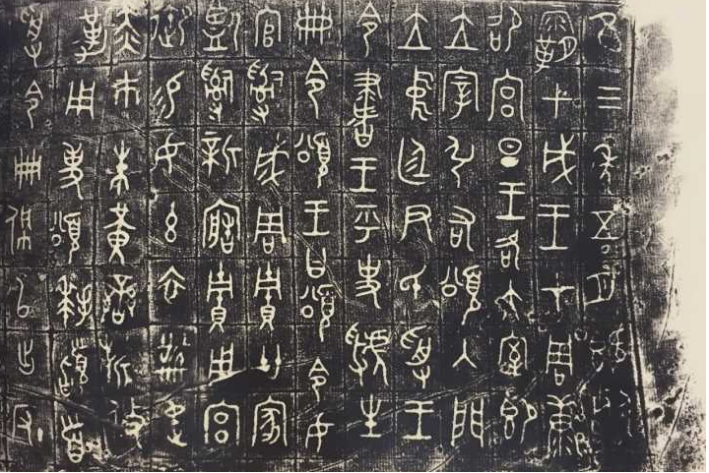 隹三年五月既死
霸甲戌王才周康
卲宮旦王各大室即
立宰引右頌入門
立中廷尹氏受王
令書王乎史虢生
冊令頌王曰頌令女
官𤔲成周貯廿家
監𤔲新造貯用宮
御易女玄衣黹屯
赤巿朱黃䜌旂攸
勒用事頌拜𩒨首
受令冊佩以出反